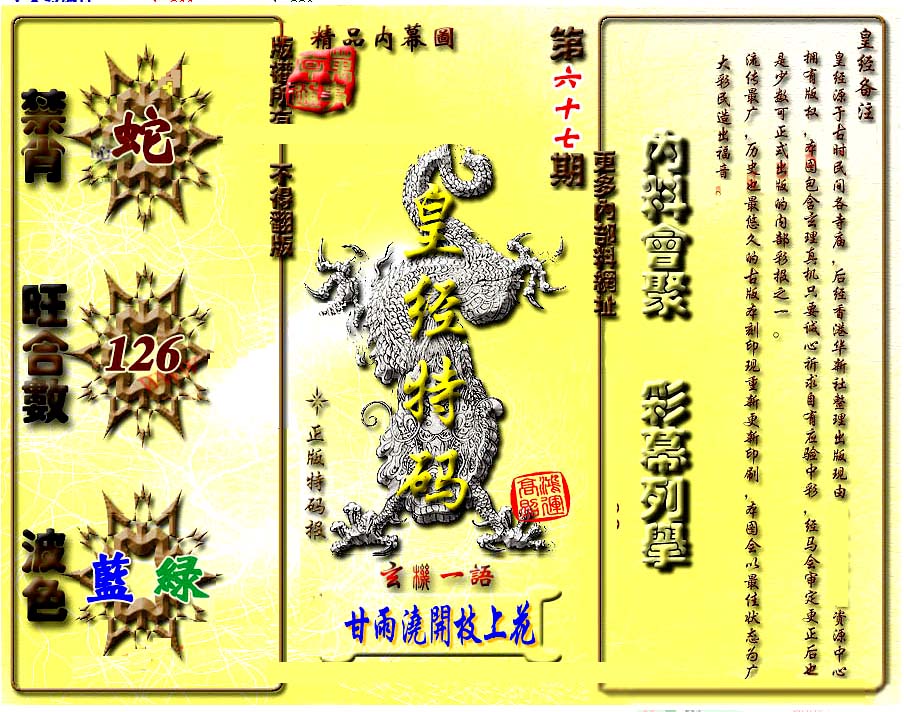 精品内幕圖
第六十七期
版權所有
不得翻版
禁肖
蛇
旺合數
126
波色
藍 綠
皇经特码
正版特码报
鴻運高照
玄機一語
甘雨澆開枝上花
更多内部料網址
内料會聚
彩幕列舉
皇经备注
皇经源于古时民间各寺庙，后经香港华新社整理出版现由 资源中心
拥有版权，本图包含玄理真机只要诚心祈求自有应验中彩，经马会审定更正后也
是少数可正式出版的内部彩报之一。
流传最广，历史也最悠久的古版本刻印现重新更新印刷，本图会以最佳状态为广
大彩民造出福音。